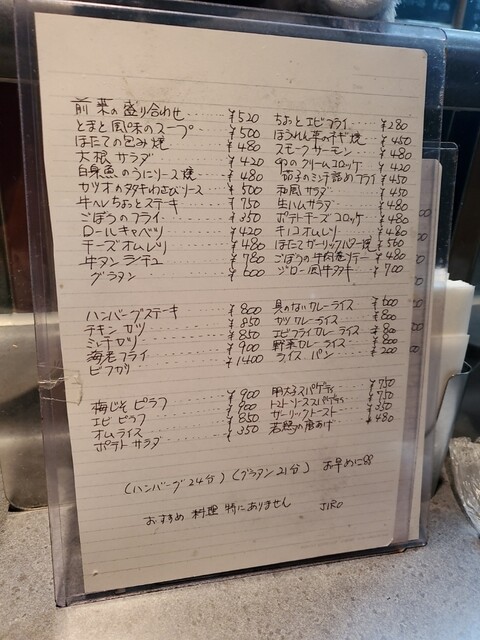 前菜の盛り合わせ ¥520
とまと風味のスープ ¥500
ほたての包み焼 ¥480
大根サラダ ¥420
白身魚のうにソース焼 ¥480
カツオのタタキわさびソース ¥500
牛ヘレちょっとステキ ¥750
ごぼうのフライ ¥350
ロールキャベツ ¥420
チーズオムレツ ¥480
牛タンシチュー ¥780
グラタン ¥600
ちょっとエビフライ ¥280
ほうれん草のチーズ焼 ¥450
スモークサーモン ¥480
カニのクリームコロッケ ¥420
茄子のミンチ詰めフライ ¥450
和風サラダ ¥450
生ハムサラダ ¥480
ポテトチーズコロッケ ¥480
キノコオムレツ ¥480
ほたてガーリックバター焼 ¥560
ごぼうの牛肉巻ソテー ¥480
ジロー風牛タタキ ¥700
ハンバーグステーキ ¥800
チキンカツ ¥850
ミンチカツ ¥850
海老フライ ¥900
ビフカツ ¥1400
具のないカレーライス ¥600
カツカレーライス ¥800
エビフライカレーライス ¥800
野菜カレーライス ¥800
ライス パン ¥200
梅じそピラフ ¥900
エビピラフ ¥900
オムライス ¥850
ポテトサラダ ¥350
明太子スパゲティ ¥750
トマトソーススパゲティ ¥750
ガーリックトースト ¥350
若鶏の唐あげ ¥480
(ハンバーグ24分) (グラタン21分) お早めに
おすすめ 料理 特にありません JIRO